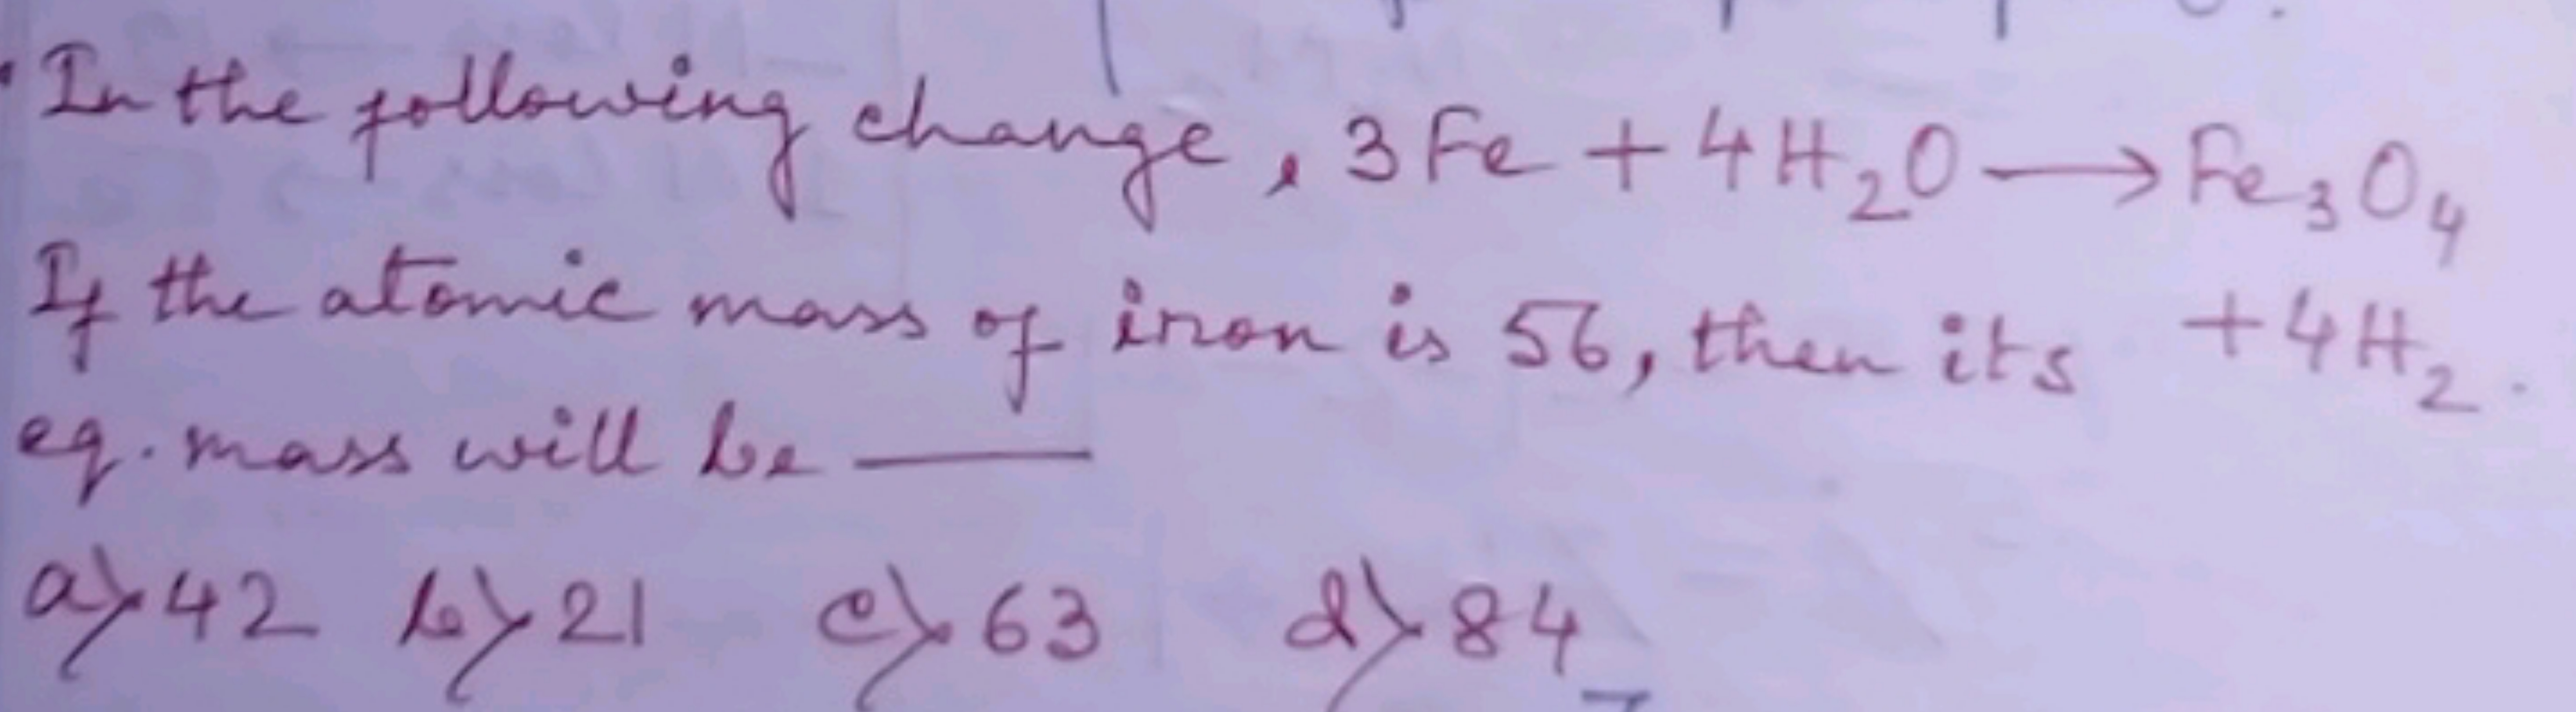 In the following change, 3Fe + 4H₂O ⟶ Fe₃O₄
If the atomic mass of iron is 56, then its + 4H₂.
eq. mass will be ____
a) 42 b) 21 c) 63 d) 84